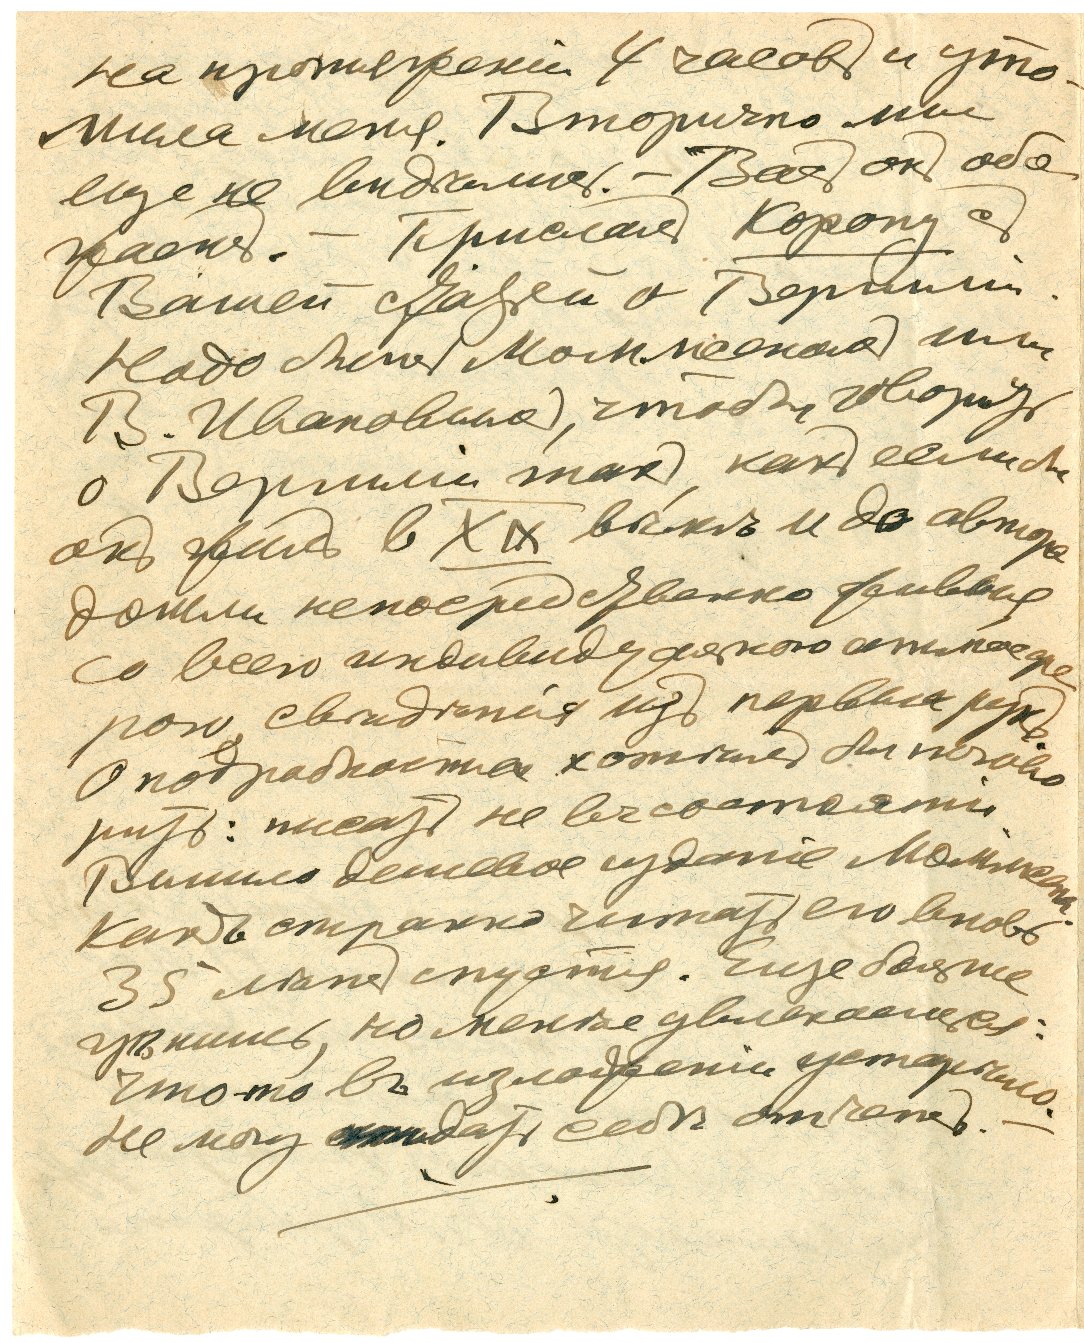 на протяженіи 4 часовъ и уто-
мила меня. Вторично мы
еще не видѣлись. — Васъ онъ обо-
жаетъ. — Прислалъ Корону съ
Вашей статьей о Вергиліи.
Надо быть Моммсеномъ или
В. Ивановымъ, чтобы говорить
о Вергиліи такъ, какъ если бы
онъ жилъ в XIX вѣкѣ и до автора
дошли непосредственно живыя
со всею индивидуальною атмосфе
рою, свѣдѣнія изъ первыхъ рукъ
О подробностяхъ хотѣлъ бы погово
рить: писать не въ состояніи
Вышло дешевое изданіе Моммсена.
Какъ странно читать его вновь
35 лѣтъ спустя. Еще больше
учишься, но менѣе увлекаешься:
что-то въ изложеніи устарѣло.
Не могу дать себѣ отчета. —